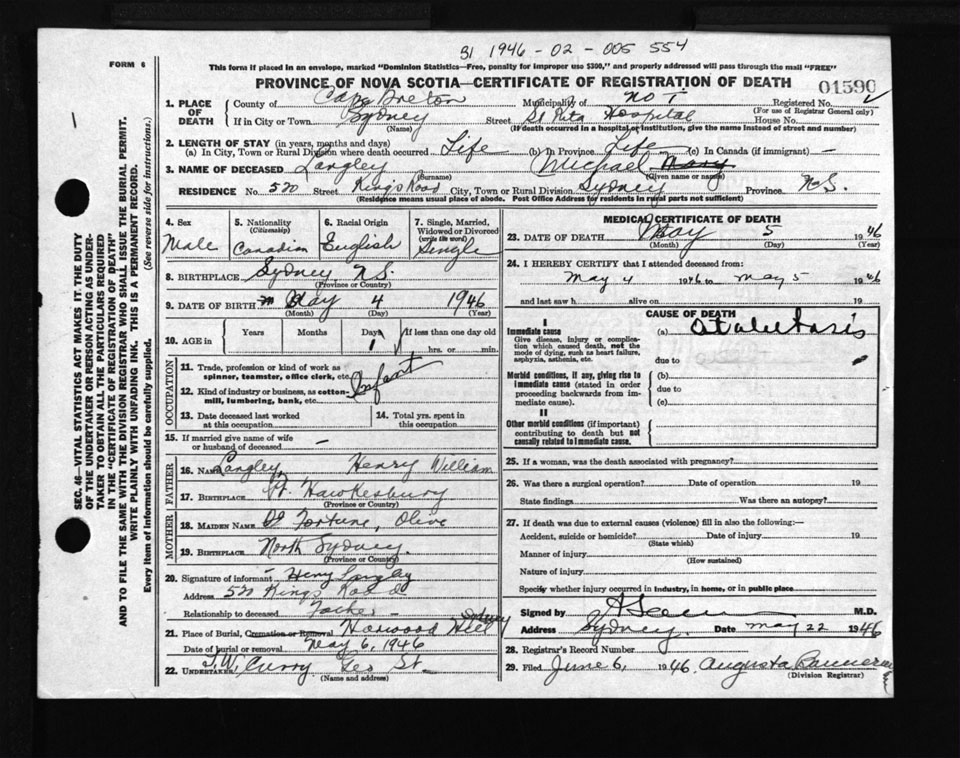 31 1946 - 02 - 005 554
FORM 6
This form if placed in an envelope, marked "Dominion Statistics—Free, penalty for improper use $300," and properly addressed will pass through the mail "FREE"
PROVINCE OF NOVA SCOTIA—CERTIFICATE OF REGISTRATION OF DEATH
01590
1. PLACE OF DEATH
County of Cape Breton Municipality of No 1 Registered No.
(For use of Registrar General only)
If in City or Town Sydney Street St Rita Hospital House No.
(Name) (If death occurred in a hospital or institution, give the name instead of street and number)
2. LENGTH OF STAY (in years, months and days)
(a) In City, Town or Rural Division where death occurred Life (b) In Province Life (c) In Canada (if immigrant) —
3. NAME OF DECEASED Langley Michael Mary
(Surname) (Given name or names)
RESIDENCE No. 570 Street Kings Road City, Town or Rural Division Sydney Province N.S.
(Residence means usual place of abode. Post Office Address for residents in rural parts not sufficient)
4. Sex Male
5. Nationality (Citizenship) Canadian
6. Racial Origin English
7. Single, Married, Widowed or Divorced (write the word) Single
8. BIRTHPLACE Sydney N.S.
(Province or Country)
9. DATE OF BIRTH May 4 1946
(Month) (Day) (Year)
10. AGE in Years Months Days 1 If less than one day old
hrs. or min.
OCCUPATION
11. Trade, profession or kind of work as spinner, teamster, office clerk, etc. Infant
12. Kind of industry or business, as cotton-mill, lumbering, bank, etc.
13. Date deceased last worked at this occupation
14. Total yrs. spent in this occupation
15. If married give name of wife or husband of deceased —
FATHER
16. Name Langley, Henry William
17. Birthplace Pt. Hawkesbury
(Province or Country)
MOTHER
18. Maiden Name Fortune, Olive
19. Birthplace North Sydney.
(Province or Country)
20. Signature of informant - Henry Langley
Address 570 Kings Road
Relationship to deceased Father —
21. Place of Burial, Cremation or Removal Harwood Hill Sydney
Date of burial or removal May 6, 1946
22. Undertaker T.W. Curry Geo St.
(Name and address)
MEDICAL CERTIFICATE OF DEATH
23. DATE OF DEATH May 5 1946
(Month) (Day) (Year)
24. I HEREBY CERTIFY that I attended deceased from:
May 4 1946 to May 5 1946
and last saw h alive on 19
CAUSE OF DEATH
I
Immediate cause
Give disease, injury or complication which caused death, not the mode of dying, such as heart failure, asphyxia, asthenia, etc.
(a) Atalectasis
due to
Morbid conditions, if any, giving rise to immediate cause (stated in order proceeding backwards from immediate cause).
(b)
due to
(c)
II
Other morbid conditions (if important) contributing to death but not causally related to immediate cause.
25. If a woman, was the death associated with pregnancy?
26. Was there a surgical operation? Date of operation 19
State findings Was there an autopsy?
27. If death was due to external causes (violence) fill in also the following:—
Accident, suicide or homicide? Date of injury 19
(State which)
Manner of injury
(How sustained)
Nature of injury
Specify whether injury occurred in industry, in home, or in public place
Signed by M.D.
Address Sydney. Date May 22 1946
28. Registrar's Record Number
29. Filed June 6, 1946. Augusta
(Division Registrar)
SEC. 46—VITAL STATISTICS ACT MAKES IT THE DUTY
OF THE UNDERTAKER OR PERSON ACTING AS UNDER-
TAKER TO OBTAIN ALL THE PARTICULARS REQUIRED
IN THE "CERTIFICATE OF REGISTRATION OF DEATH"
AND TO FILE THE SAME WITH THE DIVISION REGISTRAR WHO SHALL ISSUE THE BURIAL PERMIT.
WRITE PLAINLY WITH UNFADING INK. THIS IS A PERMANENT RECORD.
Every item of Information should be carefully supplied. (See reverse side for instructions.)